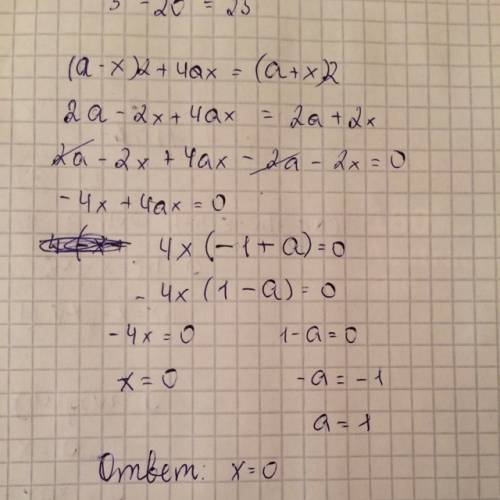 3 - 20 = 23
(a - x)2 + 4ax = (a + x)2
2a - 2x + 4ax = 2a + 2x
2a - 2x + 4ax - 2a - 2x = 0
- 4x + 4ax = 0
4x (- 1 + a) = 0
- 4x (1 - a) = 0
- 4x = 0 1 - a = 0
x = 0 - a = - 1
a = 1
Ответ: x = 0